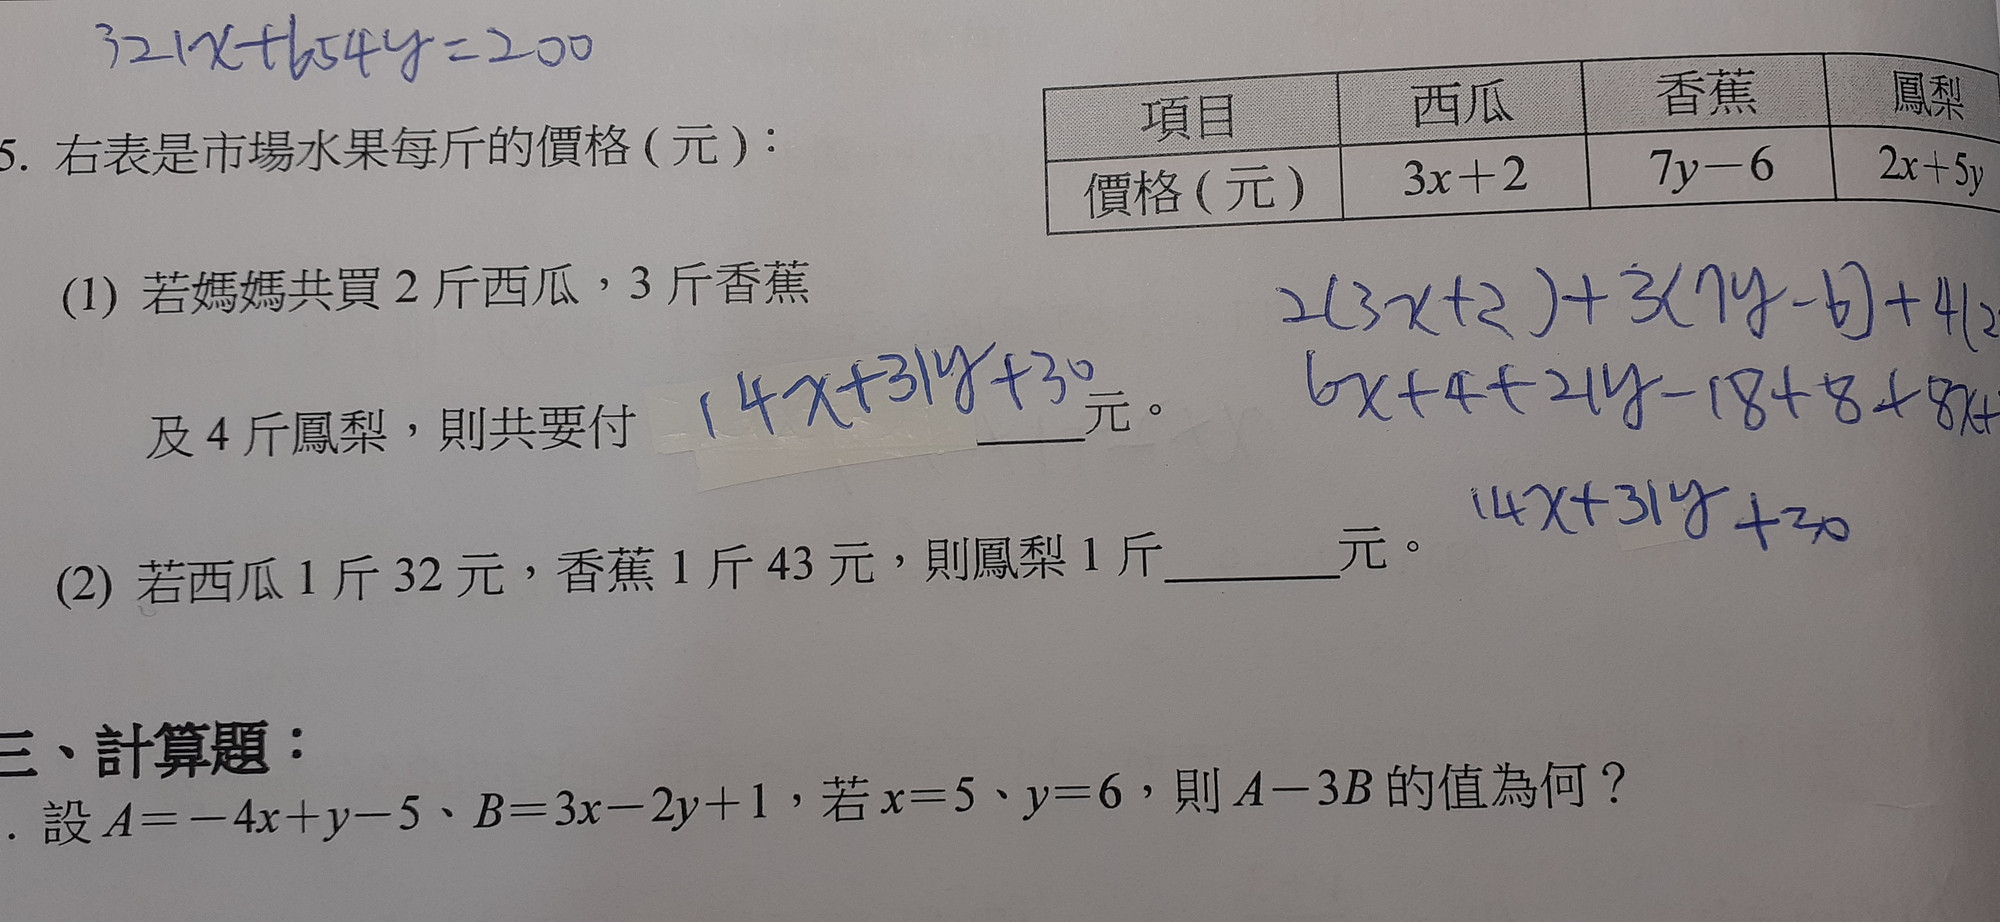 321x+654y=200
5. 右表是市場水果每斤的價格(元):
項目 西瓜 香蕉 鳳梨
價格(元) 3x+2 7y-6 2x+5y
(1) 若媽媽共買 2 斤西瓜,3 斤香蕉
2(3x+2)+3(7y-6)+4(2
及 4 斤鳳梨,則共要付 14x+31y+30 元。
6x+4+21y-18+8+8x+
14x+31y+30
(2) 若西瓜 1 斤 32 元,香蕉 1 斤 43 元,則鳳梨 1 斤______元。
三、計算題:
. 設 A=-4x+y-5、B=3x-2y+1,若 x=5、y=6,則 A-3B 的值為何?